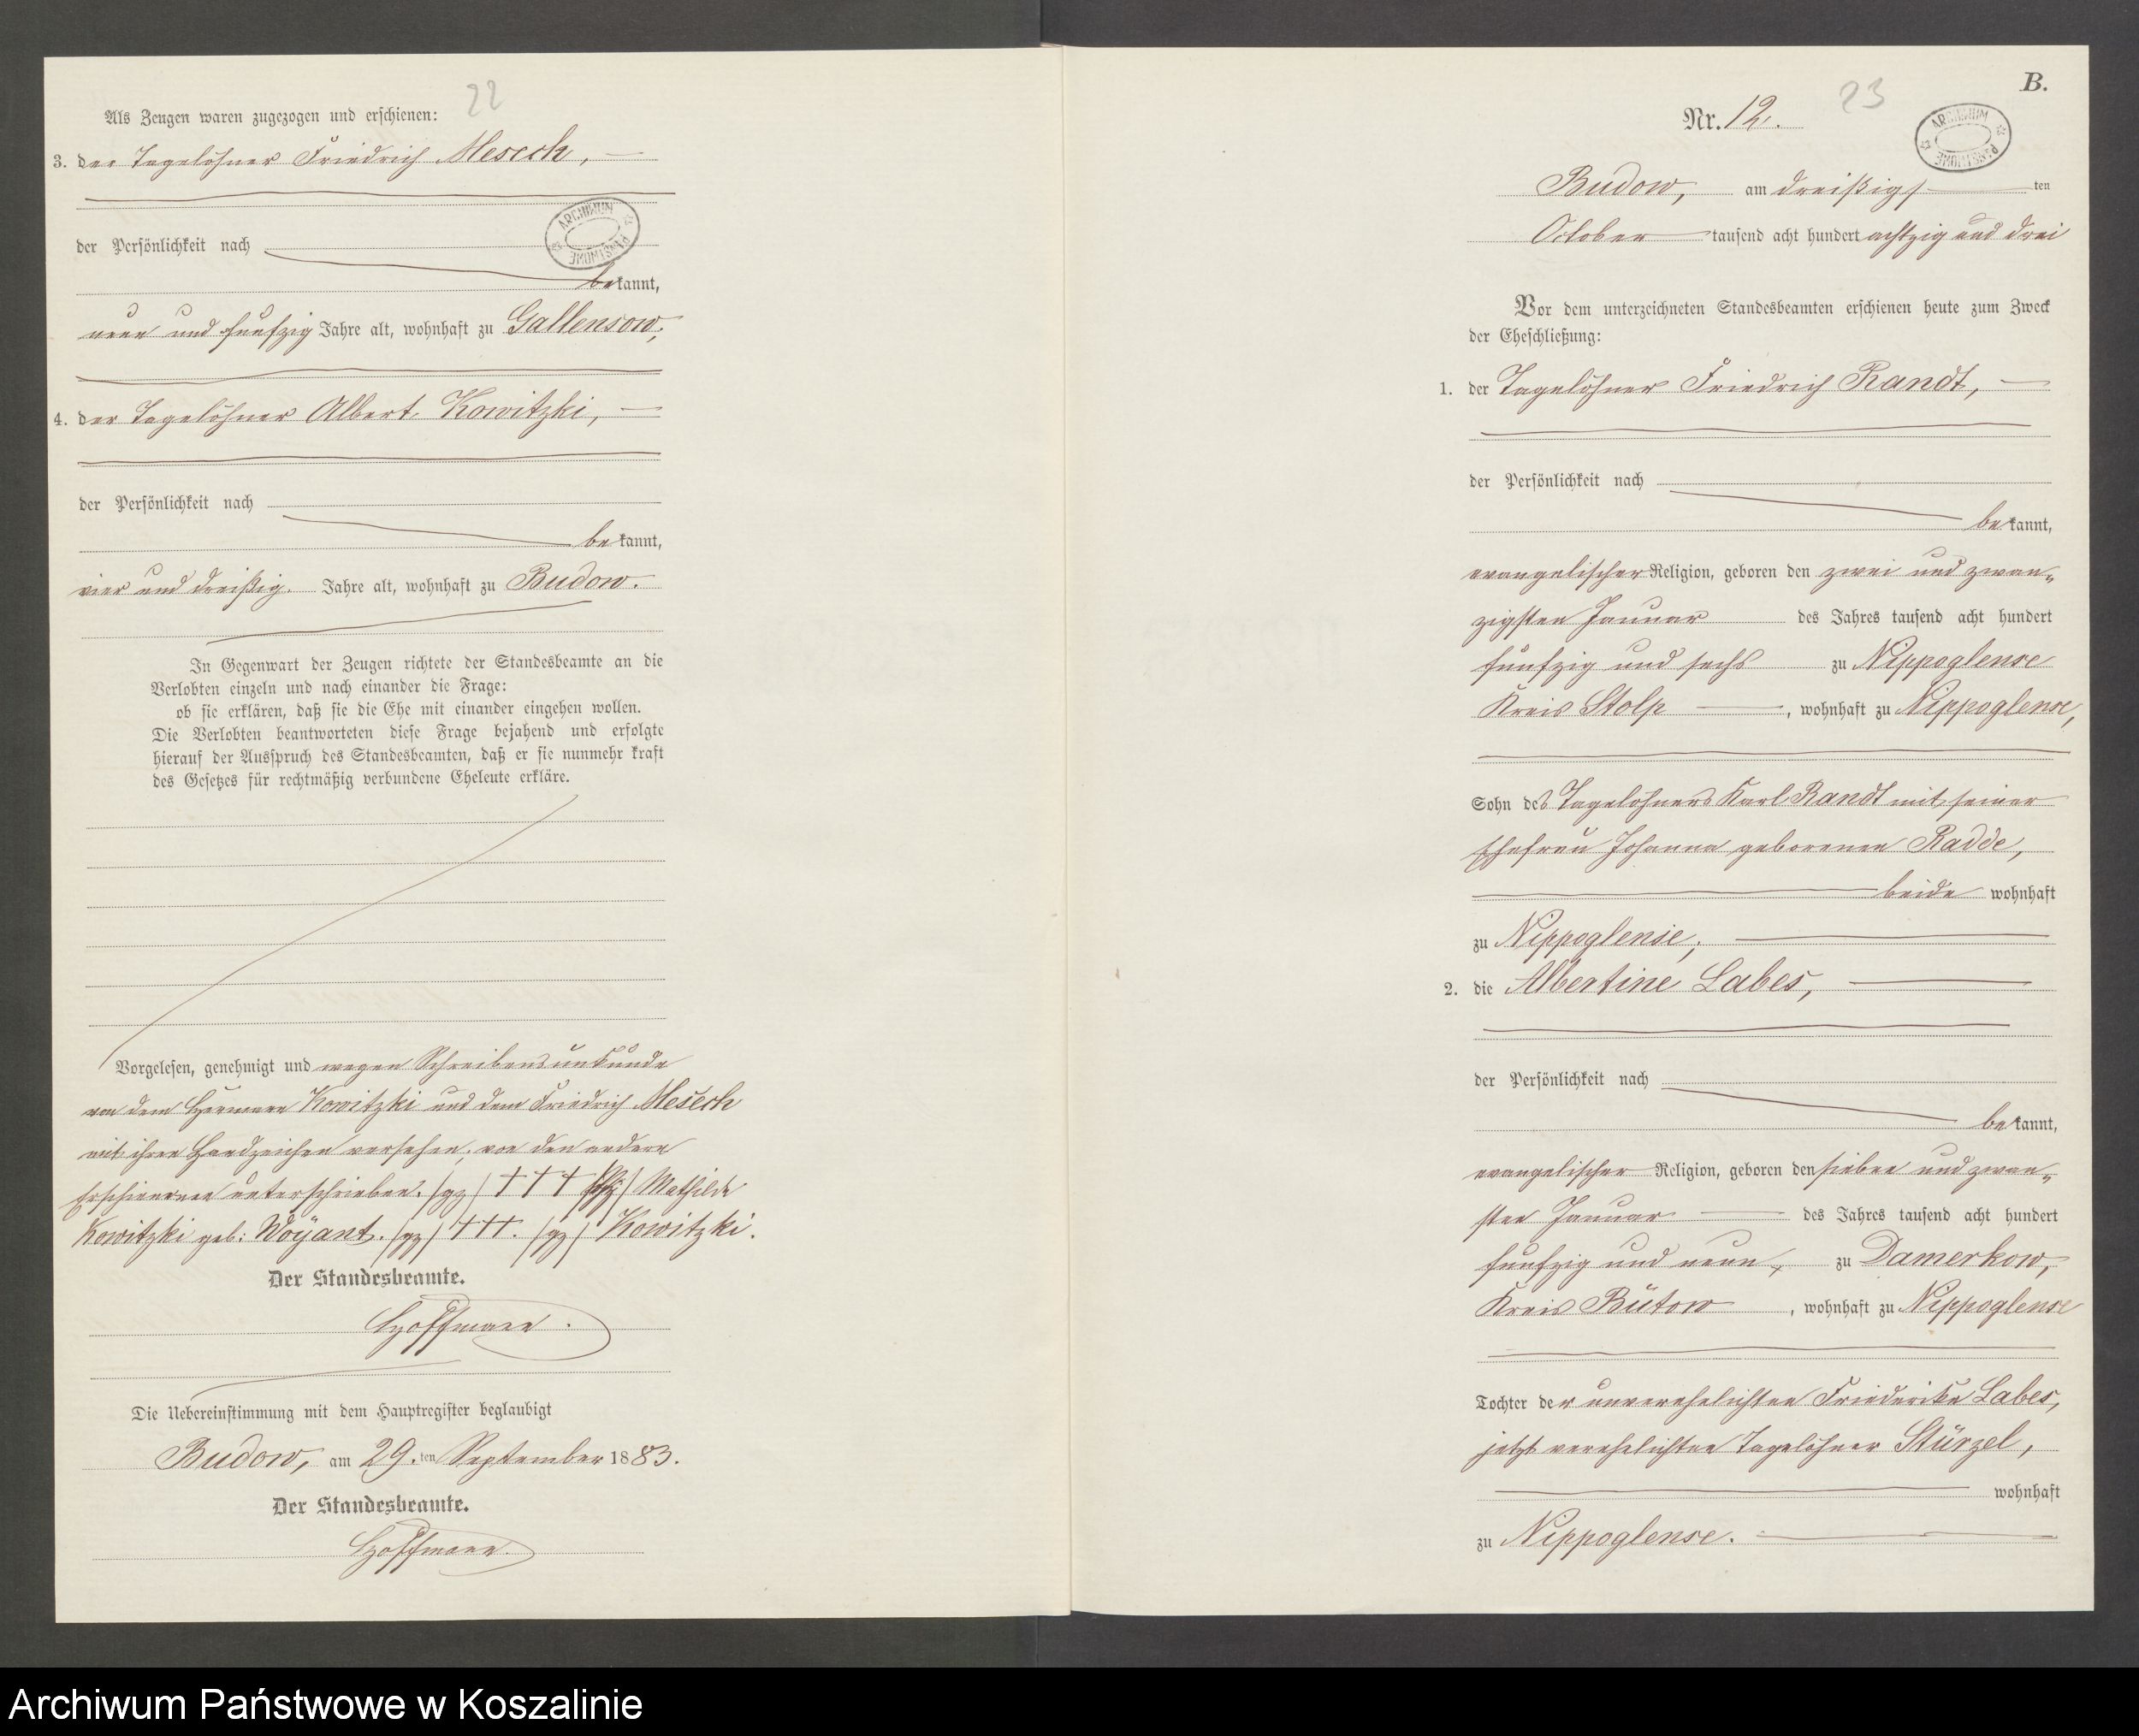 22
Als Zeugen waren zugezogen und erschienen:
3. der Tagelöhner Friedrich Mesech,
ARCHIWUM PAŃSTWOWE
der Persönlichkeit nach
bekannt,
neun und fünfzig Jahre alt, wohnhaft zu Gallensow,
4. der Tagelöhner Albert Kowitzki,
der Persönlichkeit nach
bekannt,
vier und dreißig Jahre alt, wohnhaft zu Budow.
In Gegenwart der Zeugen richtete der Standesbeamte an die
Verlobten einzeln und nach einander die Frage:
ob sie erklären, daß sie die Ehe mit einander eingehen wollen.
Die Verlobten beantworteten diese Frage bejahend und erfolgte
hierauf der Ausspruch des Standesbeamten, daß er sie nunmehr kraft
des Gesetzes für rechtmäßig verbundene Eheleute erkläre.
Vorgelesen, genehmigt und wegen Schreibensunkunde
von dem Hermann Kowitzki und dem Friedrich Mesech
mit ihren Handzeichen versehen, von den andern
Erschienenen unterschrieben. /gz/ +++ /gz/ Mathilde
Kowitzki geb: Woÿant. /gz/ +++. /gz/ Kowitzki.
Der Standesbeamte.
Hoffmann.
Die Uebereinstimmung mit dem Hauptregister beglaubigt
Budow, am 29.ten September 1883.
Der Standesbeamte.
Hoffmann.
B.
23
Nr. 12.
ARCHIWUM PAŃSTWOWE
Budow, am dreißigs ten
October tausend acht hundert achtzig und drei
Vor dem unterzeichneten Standesbeamten erschienen heute zum Zweck
der Eheschließung:
1. der Tagelöhner Friedrich Randt,
der Persönlichkeit nach
bekannt,
evangelischer Religion, geboren den zwei und zwan-
zigsten Januar des Jahres tausend acht hundert
fünfzig und sechs zu Nippoglense
Kreis Stolp, wohnhaft zu Nippoglense,
Sohn des Tagelöhners Karl Randt mit seiner
Ehefrau Johanna geborenen Radde,
beide wohnhaft
zu Nippoglense;
2. die Albertine Labes,
der Persönlichkeit nach
bekannt,
evangelischer Religion, geboren den sieben und zwan-
sten Januar des Jahres tausend acht hundert
fünfzig und neun, zu Damerkow,
Kreis Bütow, wohnhaft zu Nippoglense
Tochter der unverehelichten Friederike Labes,
jetzt verehelichten Tagelöhner Stürzel,
wohnhaft
zu Nippoglense.
Archiwum Państwowe w Koszalinie